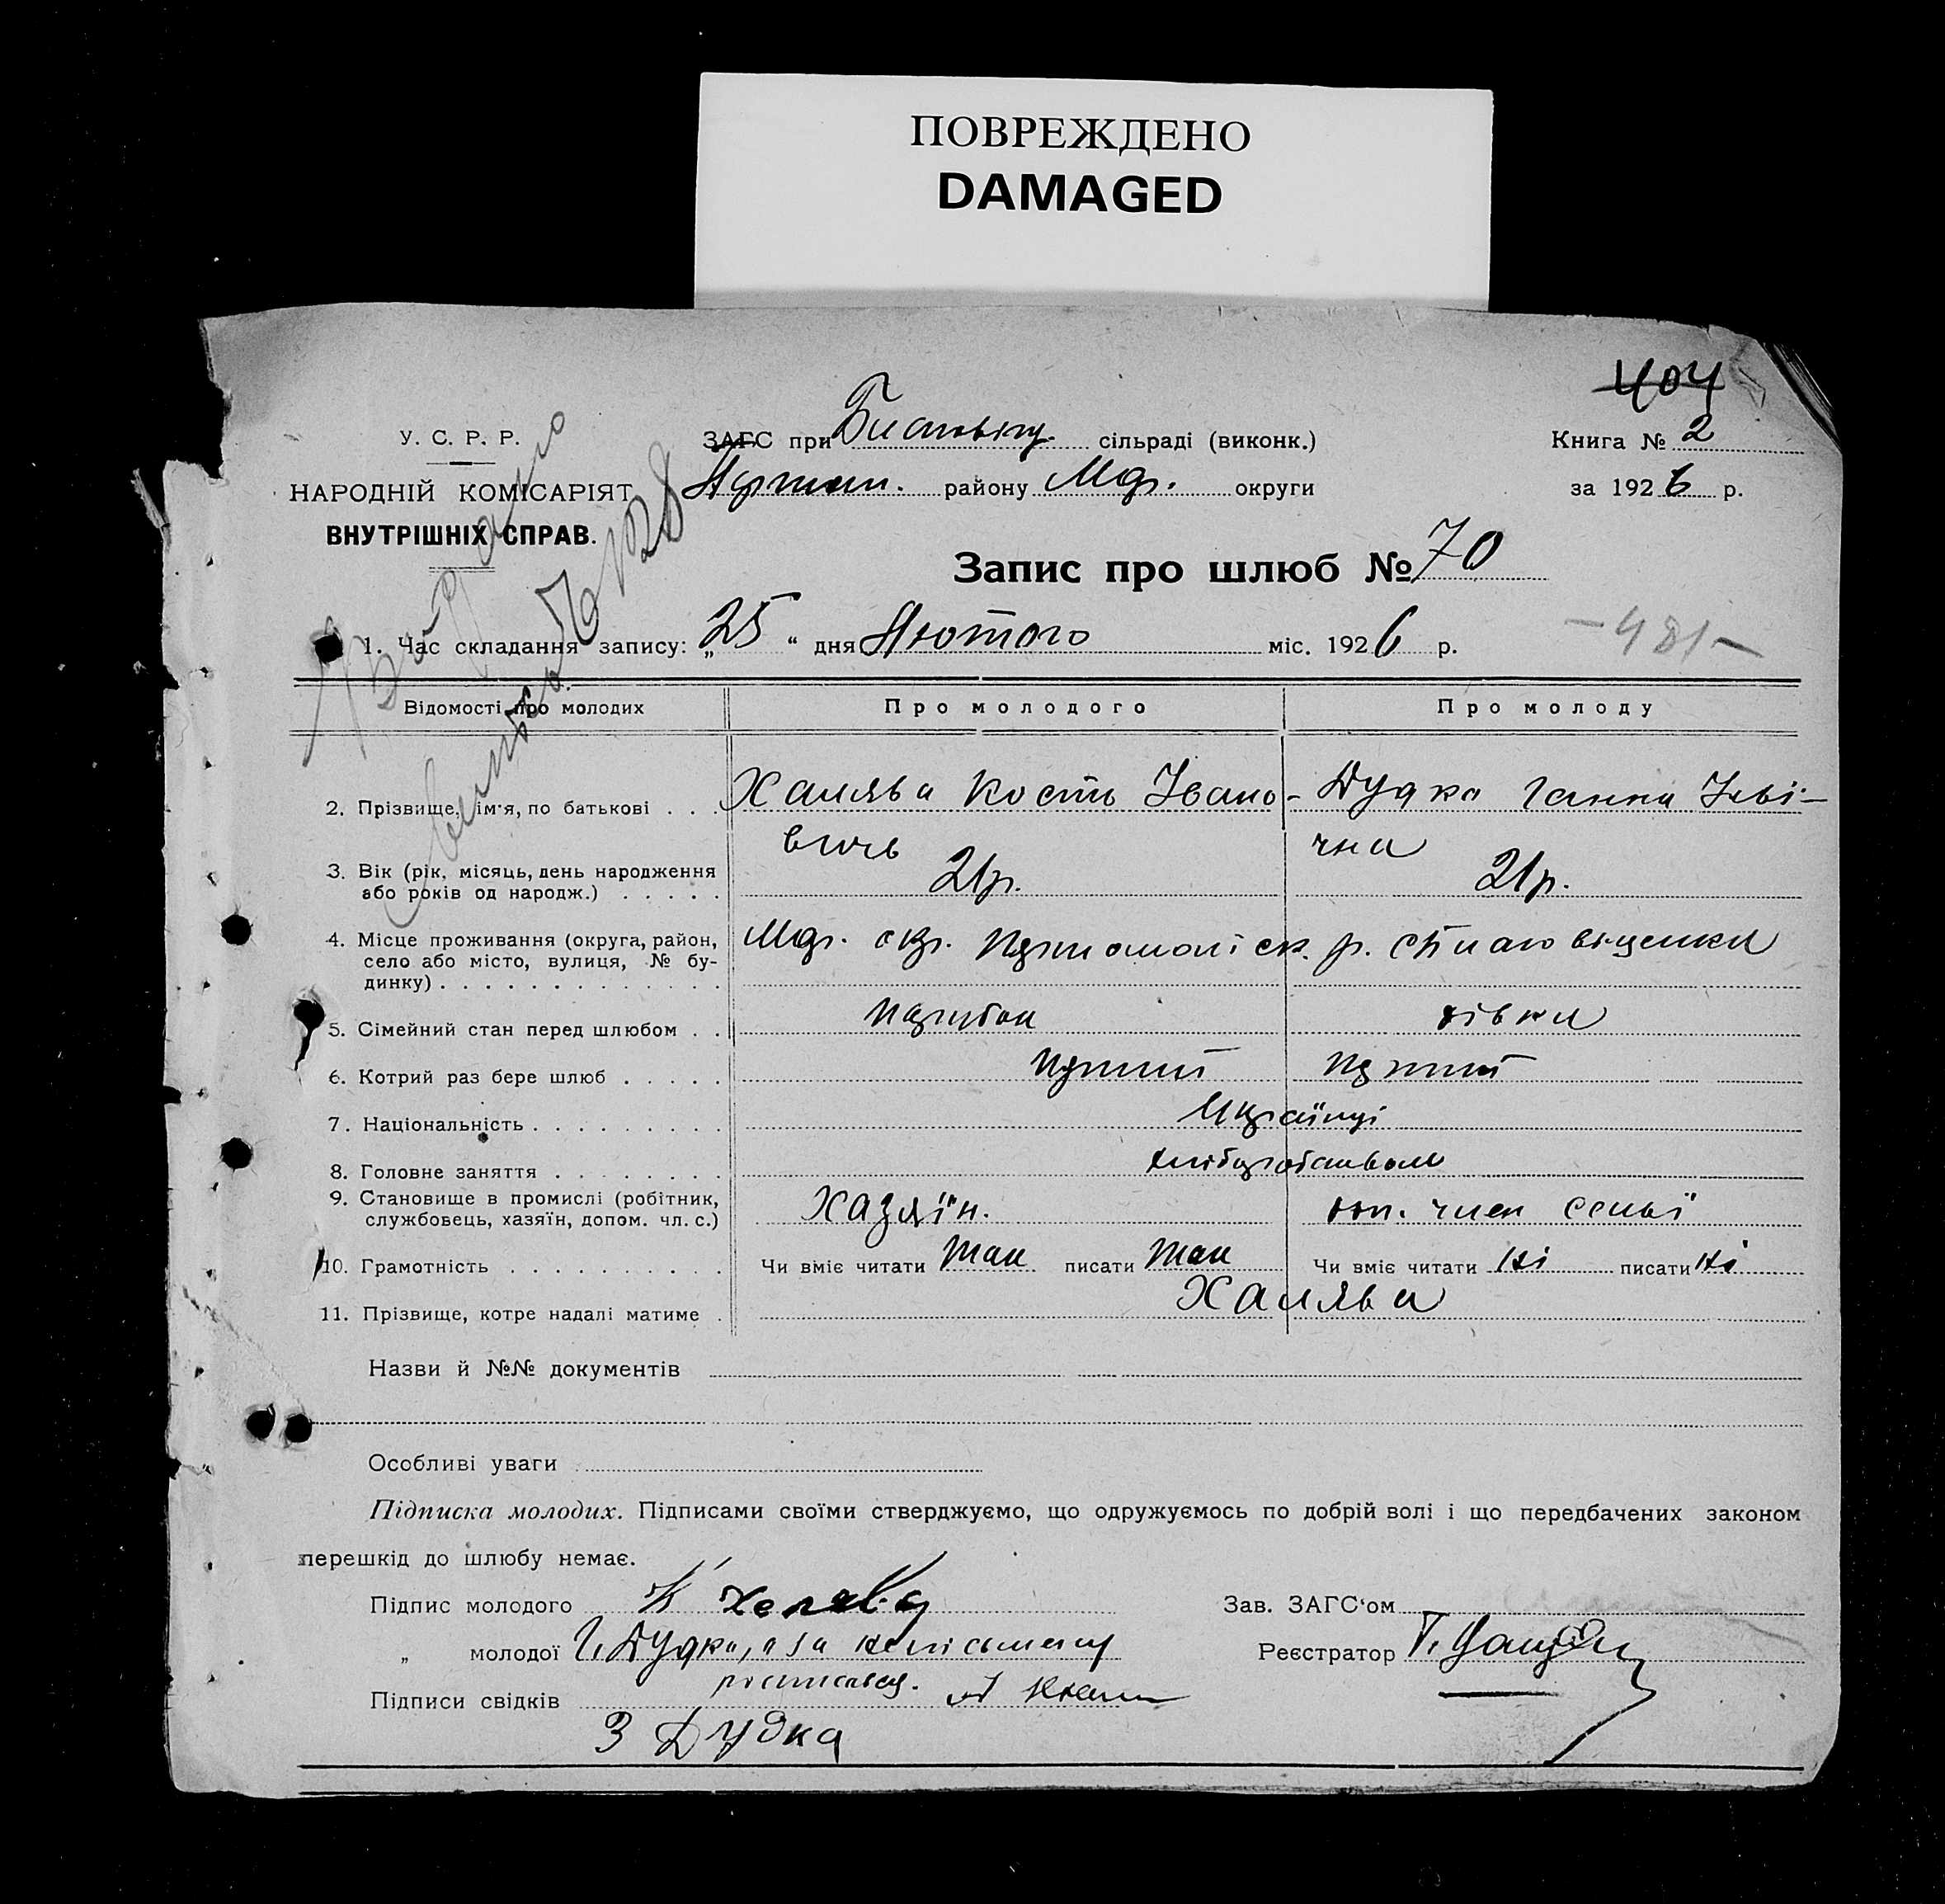 ПОВРЕЖДЕНО
DAMAGED
404
У. С. Р. Р.
НАРОДНІЙ КОМІСАРІЯТ
ВНУТРІШНІХ СПРАВ.
ЗАГС при сільраді (виконк.)
району округи
Книга № 2
за 1926 р.
Запис про шлюб № 70
1. Час складання запису: „25“ дня Лютого міс. 1926 р.
-481-
Відомості про молодих Про молодого Про молоду
2. Прізвище, ім'я, по батькові . . . Халява Кость Івано- Дудка Ганна
вичь чна
3. Вік (рік, місяць, день народження
або років од народж.) . . . . . 21р. 21р.
4. Місце проживання (округа, район,
село або місто, вулиця, № бу-
динку) . . . . . . . . . . . . .
5. Сімейний стан перед шлюбом . . парубок дівка
6. Котрий раз бере шлюб . . . . . перший перший
7. Національність . . . . . . . . . Українці
8. Головне заняття . . . . . . . . хліборобством
9. Становище в промислі (робітник,
службовець, хазяїн, допом. чл. с.) Хазяїн. доп. член семьї
10. Грамотність . . . . . . . . . . Чи вміє читати так писати так Чи вміє читати ні писати ні
11. Прізвище, котре надалі матиме . Халява
Назви й №№ документів
Особливі уваги
Підписка молодих. Підписами своїми стверджуємо, що одружуємось по добрій волі і що передбачених законом
перешкід до шлюбу немає.
Підпис молодого К Халява Зав. ЗАГС'ом
„ молодої Г. Дудка, а за Реєстратор
Підписи свідків
З Дудка